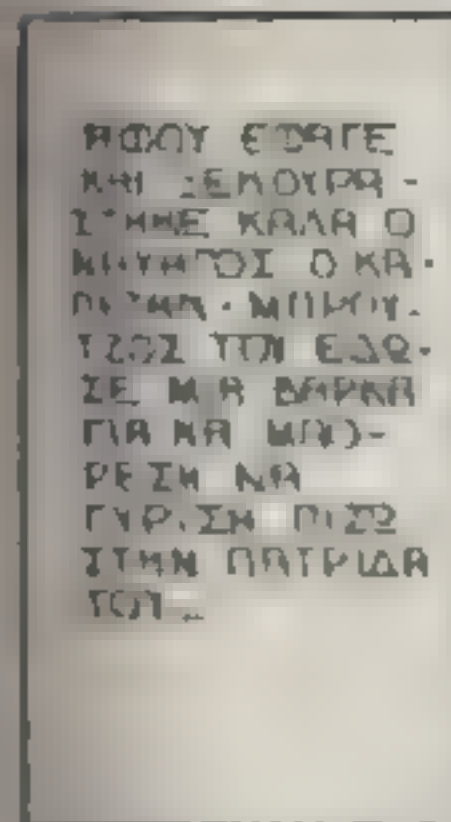 ΑΦΟΥ ΕΦΑΓΕ
ΚΑΙ ΞΕΚΟΥΡΑ-
ΣΤΗΚΕ ΚΑΛΑ Ο
Ο ΚΑ-
ΜΠΡΟΥ-
ΤΖΟΣ ΤΟΥ ΕΔΩ-
ΣΕ ΜΙΑ ΒΑΡΚΑ
ΓΙΑ ΝΑ ΜΠΟ-
ΡΕΣΗ ΝΑ
ΓΥΡΙΣΗ ΠΙΣΩ
ΣΤΗΝ ΠΑΤΡΙΔΑ
ΤΟΥ